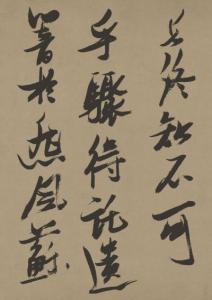 長終知不可
乎驟得託遺
響於悲風蘇